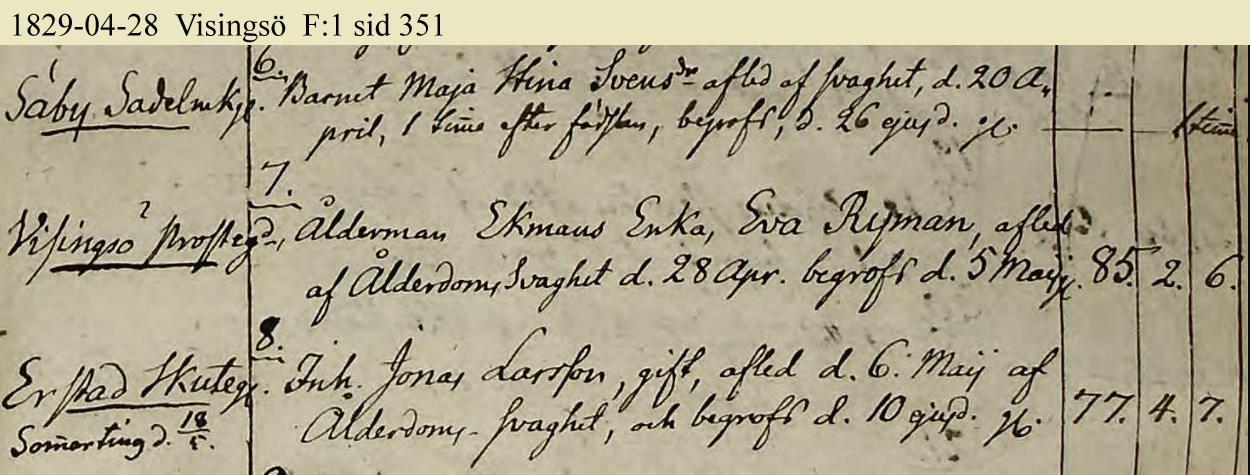 1829-04-28 Visingsö F:1 sid 351
6.
Säby Sadelmk.
Barnet Maja Stina Svensdr afled af svaghet, d. 20 A
pril, 1 time efter födslen, begrofs, d. 26 ejusd.
1 time
7.
Visingsö Prosteg.
Ålderman Ekmans Enka, Eva Ryman, afled
af Ålderdoms Svaghet d. 28 Apr. begrofs d. 5 Maij. 85. 2. 6.
8.
Erstad Skuteg.
Inh. Jonas Larsson, gift, afled d. 6. Maij af
Somarting d. 18/5.
Ålderdoms-svaghet, och begrofs d. 10 ejusd. 77. 4. 7.